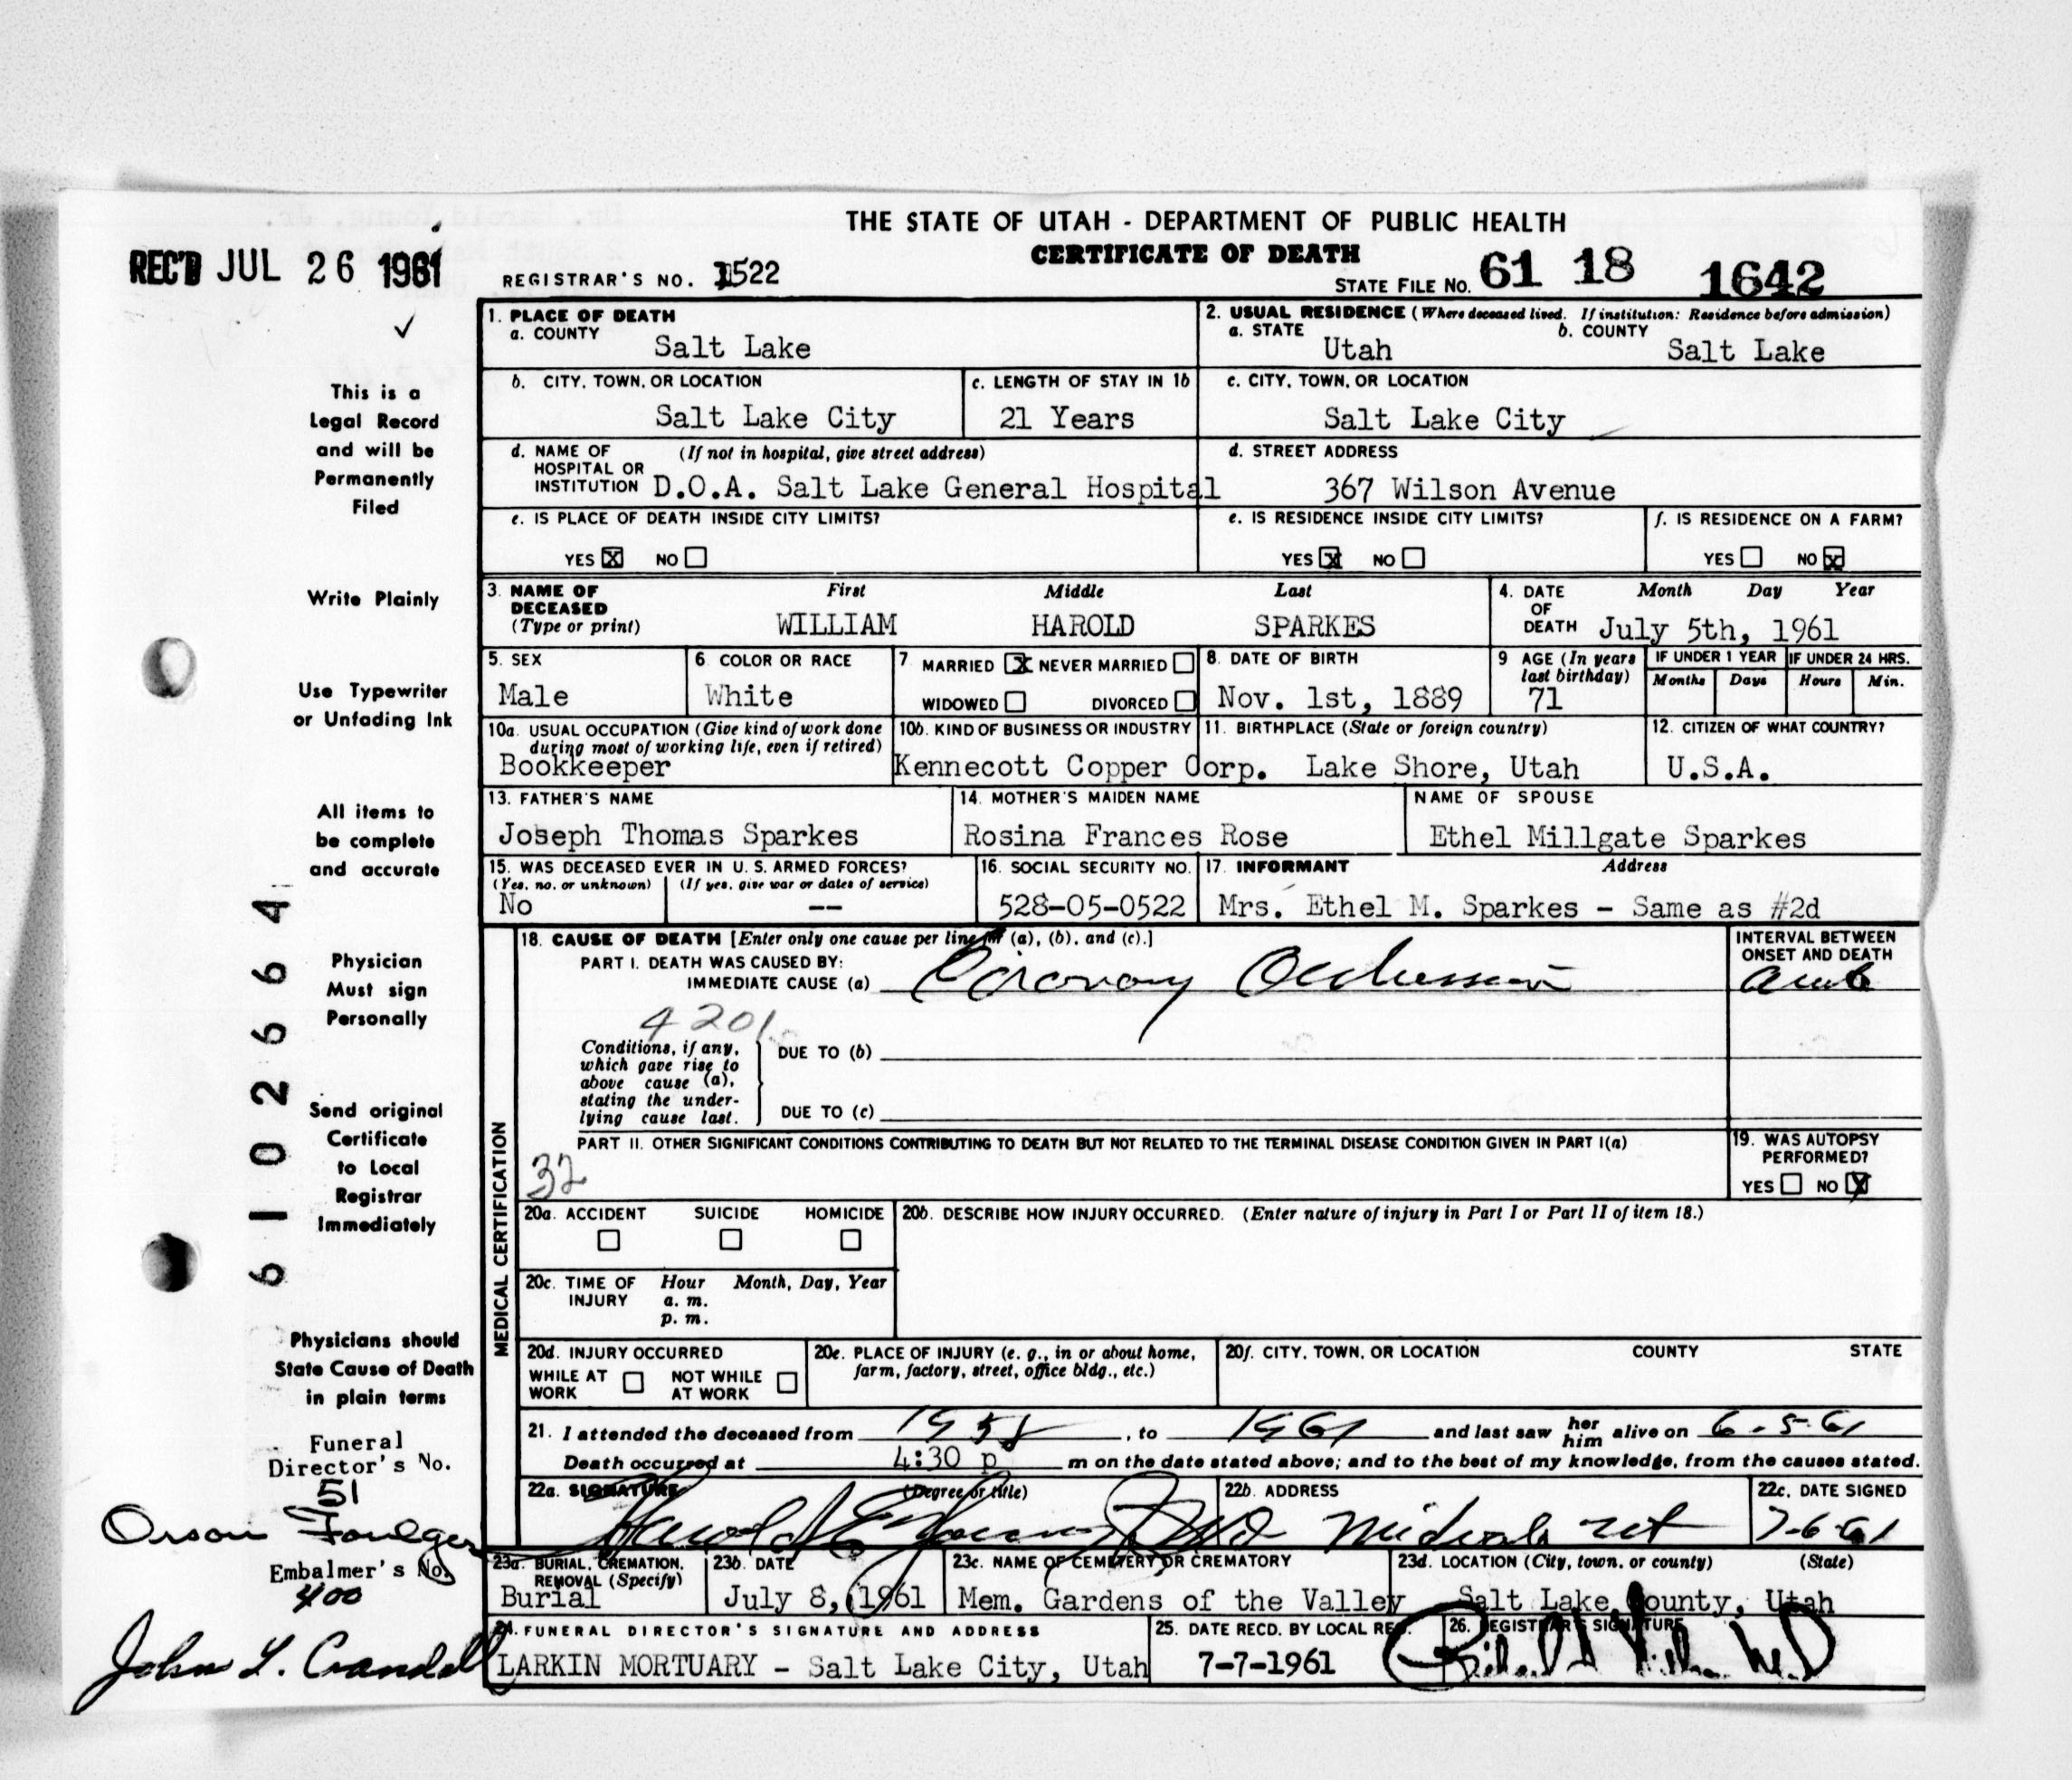 THE STATE OF UTAH - DEPARTMENT OF PUBLIC HEALTH
CERTIFICATE OF DEATH
REC'D JUL 26 1961
REGISTRAR'S NO. 1522
STATE FILE NO. 61 18 1642
This is a
Legal Record
and will be
Permanently
Filed
Write Plainly
Use Typewriter
or Unfading Ink
All items to
be complete
and accurate
Physician
Must sign
Personally
Send original
Certificate
to Local
Registrar
Immediately
Physicians should
State Cause of Death
in plain terms
Funeral
Director's No.
51
Orson Foulger
Embalmer's No.
400
John L. Crandall
6102664
1. PLACE OF DEATH
a. COUNTY
Salt Lake
2. USUAL RESIDENCE (Where deceased lived. If institution: Residence before admission)
a. STATE b. COUNTY
Utah Salt Lake
b. CITY, TOWN, OR LOCATION
Salt Lake City
c. LENGTH OF STAY IN 1b
21 Years
c. CITY, TOWN, OR LOCATION
Salt Lake City
d. NAME OF (If not in hospital, give street address)
HOSPITAL OR
INSTITUTION D.O.A. Salt Lake General Hospital
d. STREET ADDRESS
367 Wilson Avenue
e. IS PLACE OF DEATH INSIDE CITY LIMITS?
YES X NO
e. IS RESIDENCE INSIDE CITY LIMITS?
YES X NO
f. IS RESIDENCE ON A FARM?
YES NO X
3. NAME OF First Middle Last
DECEASED
(Type or print) WILLIAM HAROLD SPARKES
4. DATE Month Day Year
OF
DEATH July 5th, 1961
5. SEX
Male
6. COLOR OR RACE
White
7 MARRIED X NEVER MARRIED
WIDOWED DIVORCED
8. DATE OF BIRTH
Nov. 1st, 1889
9 AGE (In years
last birthday)
71
IF UNDER 1 YEAR IF UNDER 24 HRS.
Months Days Hours Min.
10a. USUAL OCCUPATION (Give kind of work done
during most of working life, even if retired)
Bookkeeper
10b. KIND OF BUSINESS OR INDUSTRY
Kennecott Copper Corp.
11. BIRTHPLACE (State or foreign country)
Lake Shore, Utah
12. CITIZEN OF WHAT COUNTRY?
U.S.A.
13. FATHER'S NAME
Joseph Thomas Sparkes
14. MOTHER'S MAIDEN NAME
Rosina Frances Rose
NAME OF SPOUSE
Ethel Millgate Sparkes
15. WAS DECEASED EVER IN U.S. ARMED FORCES?
(Yes, no, or unknown) (If yes, give war or dates of service)
No --
16. SOCIAL SECURITY NO.
528-05-0522
17. INFORMANT Address
Mrs. Ethel M. Sparkes - Same as #2d
MEDICAL CERTIFICATION
18. CAUSE OF DEATH [Enter only one cause per line for (a), (b), and (c).]
PART I. DEATH WAS CAUSED BY:
IMMEDIATE CAUSE (a) Coronary Occlusion
INTERVAL BETWEEN
ONSET AND DEATH
4201
Conditions, if any,
which gave rise to
above cause (a),
stating the under-
lying cause last.
DUE TO (b)
DUE TO (c)
PART II. OTHER SIGNIFICANT CONDITIONS CONTRIBUTING TO DEATH BUT NOT RELATED TO THE TERMINAL DISEASE CONDITION GIVEN IN PART I(a)
32
19. WAS AUTOPSY
PERFORMED?
YES NO X
20a. ACCIDENT SUICIDE HOMICIDE
20b. DESCRIBE HOW INJURY OCCURRED. (Enter nature of injury in Part I or Part II of item 18.)
20c. TIME OF Hour Month, Day, Year
INJURY a. m.
p. m.
20d. INJURY OCCURRED
WHILE AT NOT WHILE
WORK AT WORK
20e. PLACE OF INJURY (e. g., in or about home,
farm, factory, street, office bldg., etc.)
20f. CITY, TOWN, OR LOCATION COUNTY STATE
21. I attended the deceased from 1958, to 1961 and last saw her him alive on 6-5-61
Death occurred at 4:30 p m on the date stated above; and to the best of my knowledge, from the causes stated.
22a. SIGNATURE (Degree or title)
Harold E Young
22b. ADDRESS
Midvale Ut
22c. DATE SIGNED
7-6-61
23a. BURIAL, CREMATION,
REMOVAL (Specify)
Burial
23b. DATE
July 8, 1961
23c. NAME OF CEMETERY OR CREMATORY
Mem. Gardens of the Valley
23d. LOCATION (City, town, or county) (State)
Salt Lake County, Utah
24. FUNERAL DIRECTOR'S SIGNATURE AND ADDRESS
LARKIN MORTUARY - Salt Lake City, Utah
25. DATE RECD. BY LOCAL REG.
7-7-1961
26. REGISTRAR'S SIGNATURE